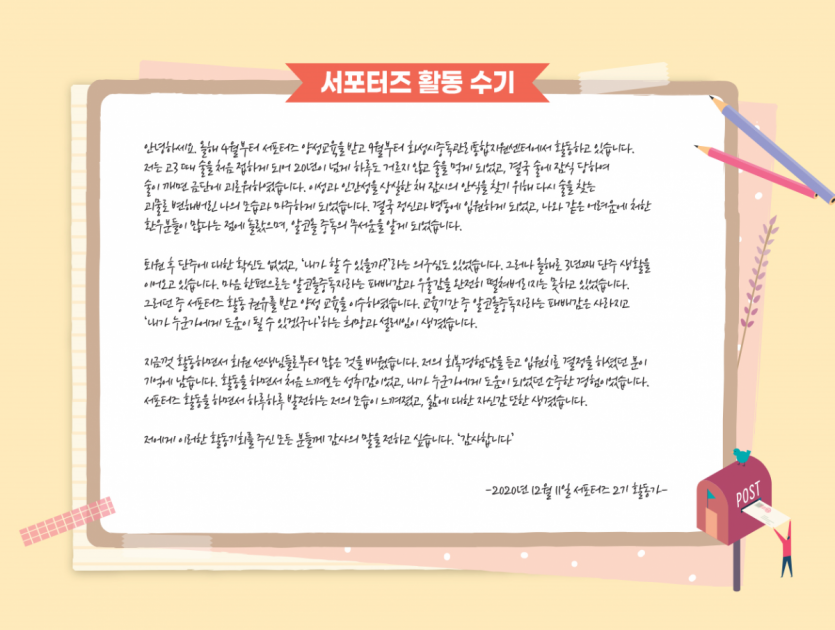 서포터즈 활동 수기
안녕하세요. 올해 4월부터 서포터즈 양성교육을 받고 9월부터 화성시중독관리통합지원센터에서 활동하고 있습니다.
저는 고3 때 술을 처음 접하게 되어 20년이 넘게 하루도 거르지 않고 술을 먹게 되었고, 결국 술에 잠식 당하여
술이 깨면 금단에 괴로워하였습니다. 이성과 인간성을 상실한 채 잠시의 안식을 찾기 위해 다시 술을 찾는
괴물로 변해버린 나의 모습과 마주하게 되었습니다. 결국 정신과 병동에 입원하게 되었고, 나와 같은 어려움에 처한
환우분들이 많다는 점에 놀랐으며, 알코올 중독의 무서움을 알게 되었습니다.
퇴원 후 단주에 대한 확신도 없었고, '내가 할 수 있을까?'라는 의구심도 있었습니다. 그러나 올해로 3년째 단주 생활을
이어오고 있습니다. 마음 한편으로는 알코올중독자라는 패배감과 우울감을 완전히 떨쳐버리지는 못하고 있었습니다.
그러던 중 서포터즈 활동 권유를 받고 양성 교육을 이수하였습니다. 교육기간 중 알코올중독자라는 패배감은 사라지고
'내가 누군가에게 도움이 될 수 있겠구나'하는 희망과 설레임이 생겼습니다.
지금껏 활동하면서 회원 선생님들로부터 많은 것을 배웠습니다. 저의 회복경험담을 듣고 입원치료 결정을 하셨던 분이
기억에 남습니다. 활동을 하면서 처음 느껴보는 성취감이었고, 내가 누군가에게 도움이 되었던 소중한 경험이었습니다.
서포터즈 활동을 하면서 하루하루 발전하는 저의 모습이 느껴졌고, 삶에 대한 자신감 또한 생겼습니다.
저에게 이러한 활동기회를 주신 모든 분들께 감사의 말을 전하고 싶습니다. '감사합니다'
-2020년 12월 11일 서포터즈 2기 활동가-
POST